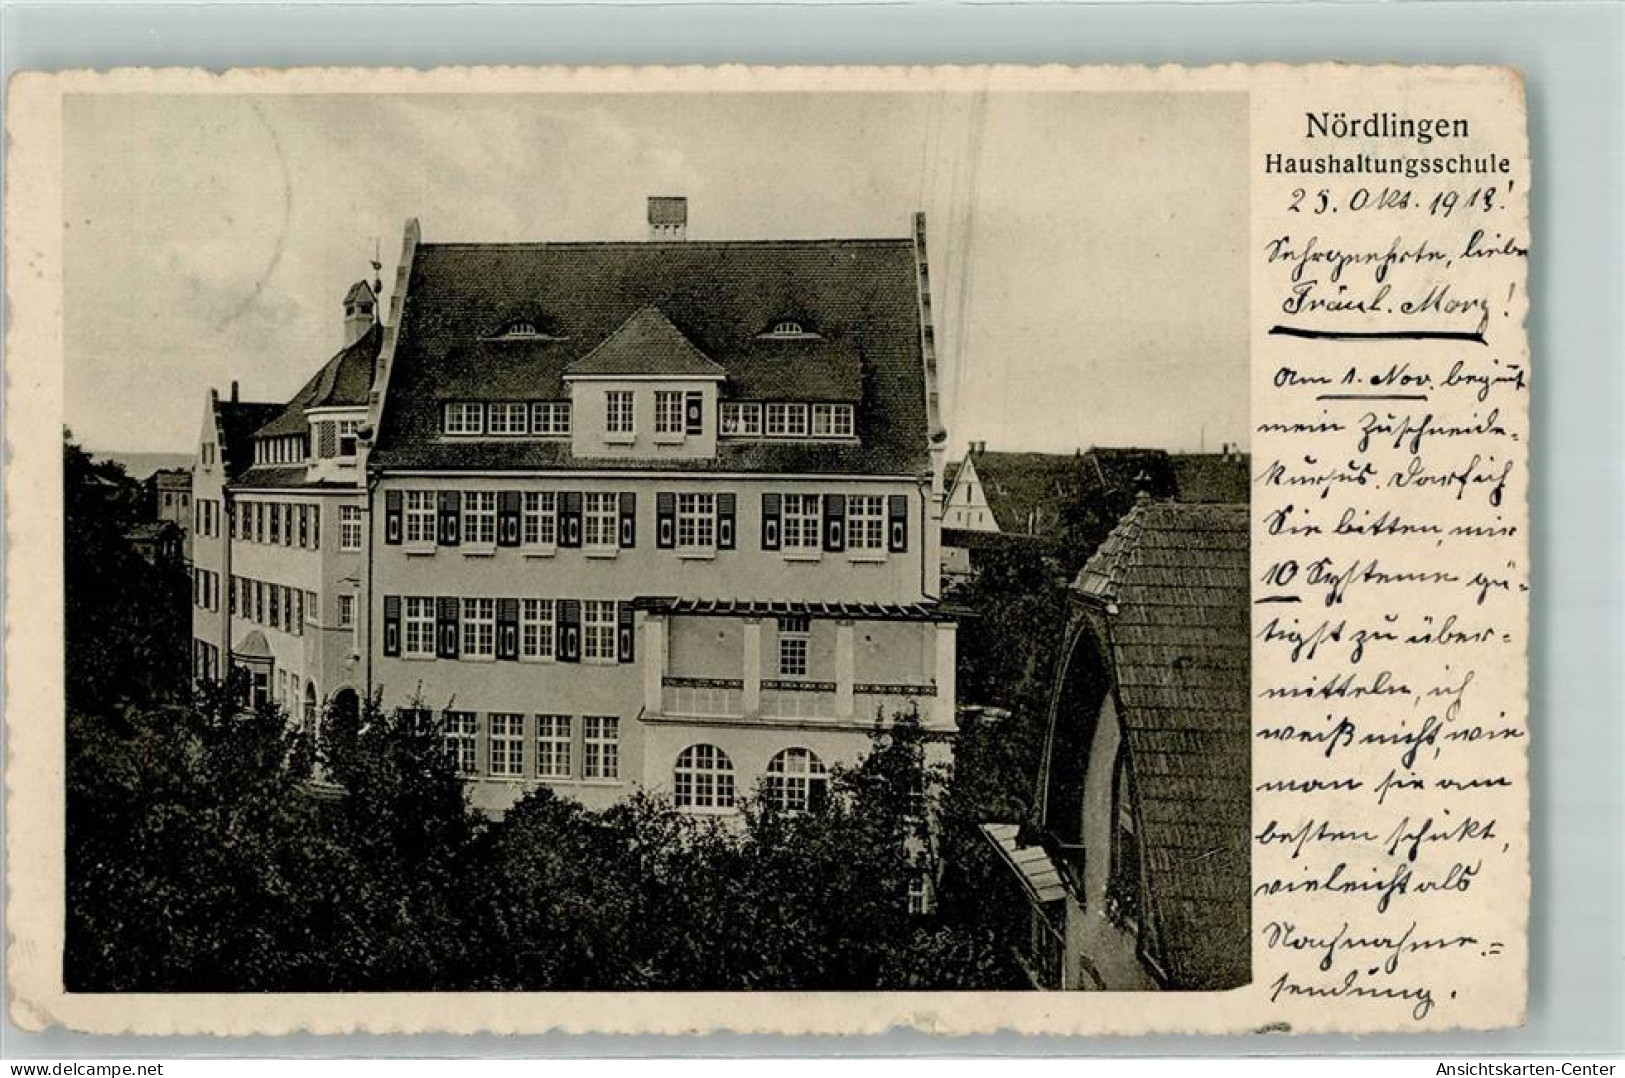 Nördlingen
Haushaltungsschule
25. Okt. 1913!
Sehrgeehrte, liebe
Fräul. Marg!
Am 1. Nov. beginnt
mein Zuschneide-
kursus. Darf ich
Sie bitten, mir
10 Systeme gü-
tigst zu über-
mitteln, ich
weiß nicht, wie
man sie am
besten schickt,
vielleicht als
Nachnahme-
sendung.
www.delcampe.net
wk-smile
Ansichtskarten-Center